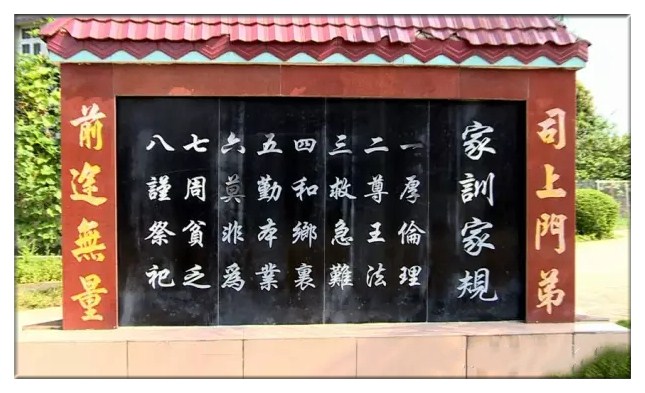 司上門弟
家訓家規
一厚倫理
二尊王法
三救急難
四和鄉裏
五勤本業
六莫非爲
七周貧乏
八謹祭祀
前途無量